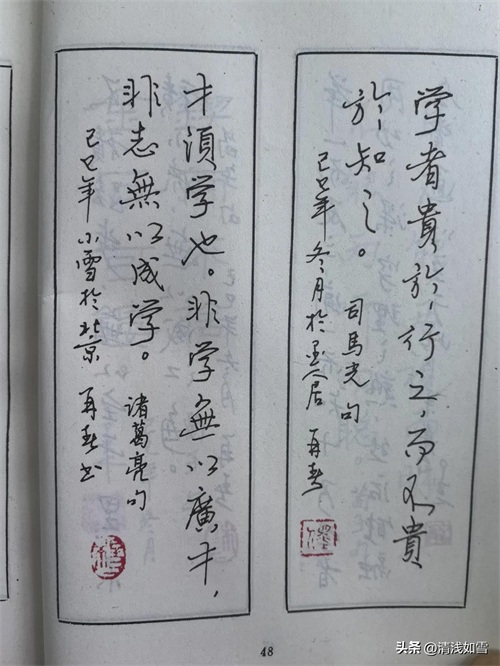 学者貴於行之，而不貴
於知之。司馬光句
己巳年冬月於墨人居 再春
才須学也。非学無以廣才，
非志無以成学。諸葛亮句
己巳年小雪於北京 再春书
48
头条@清浅如雪